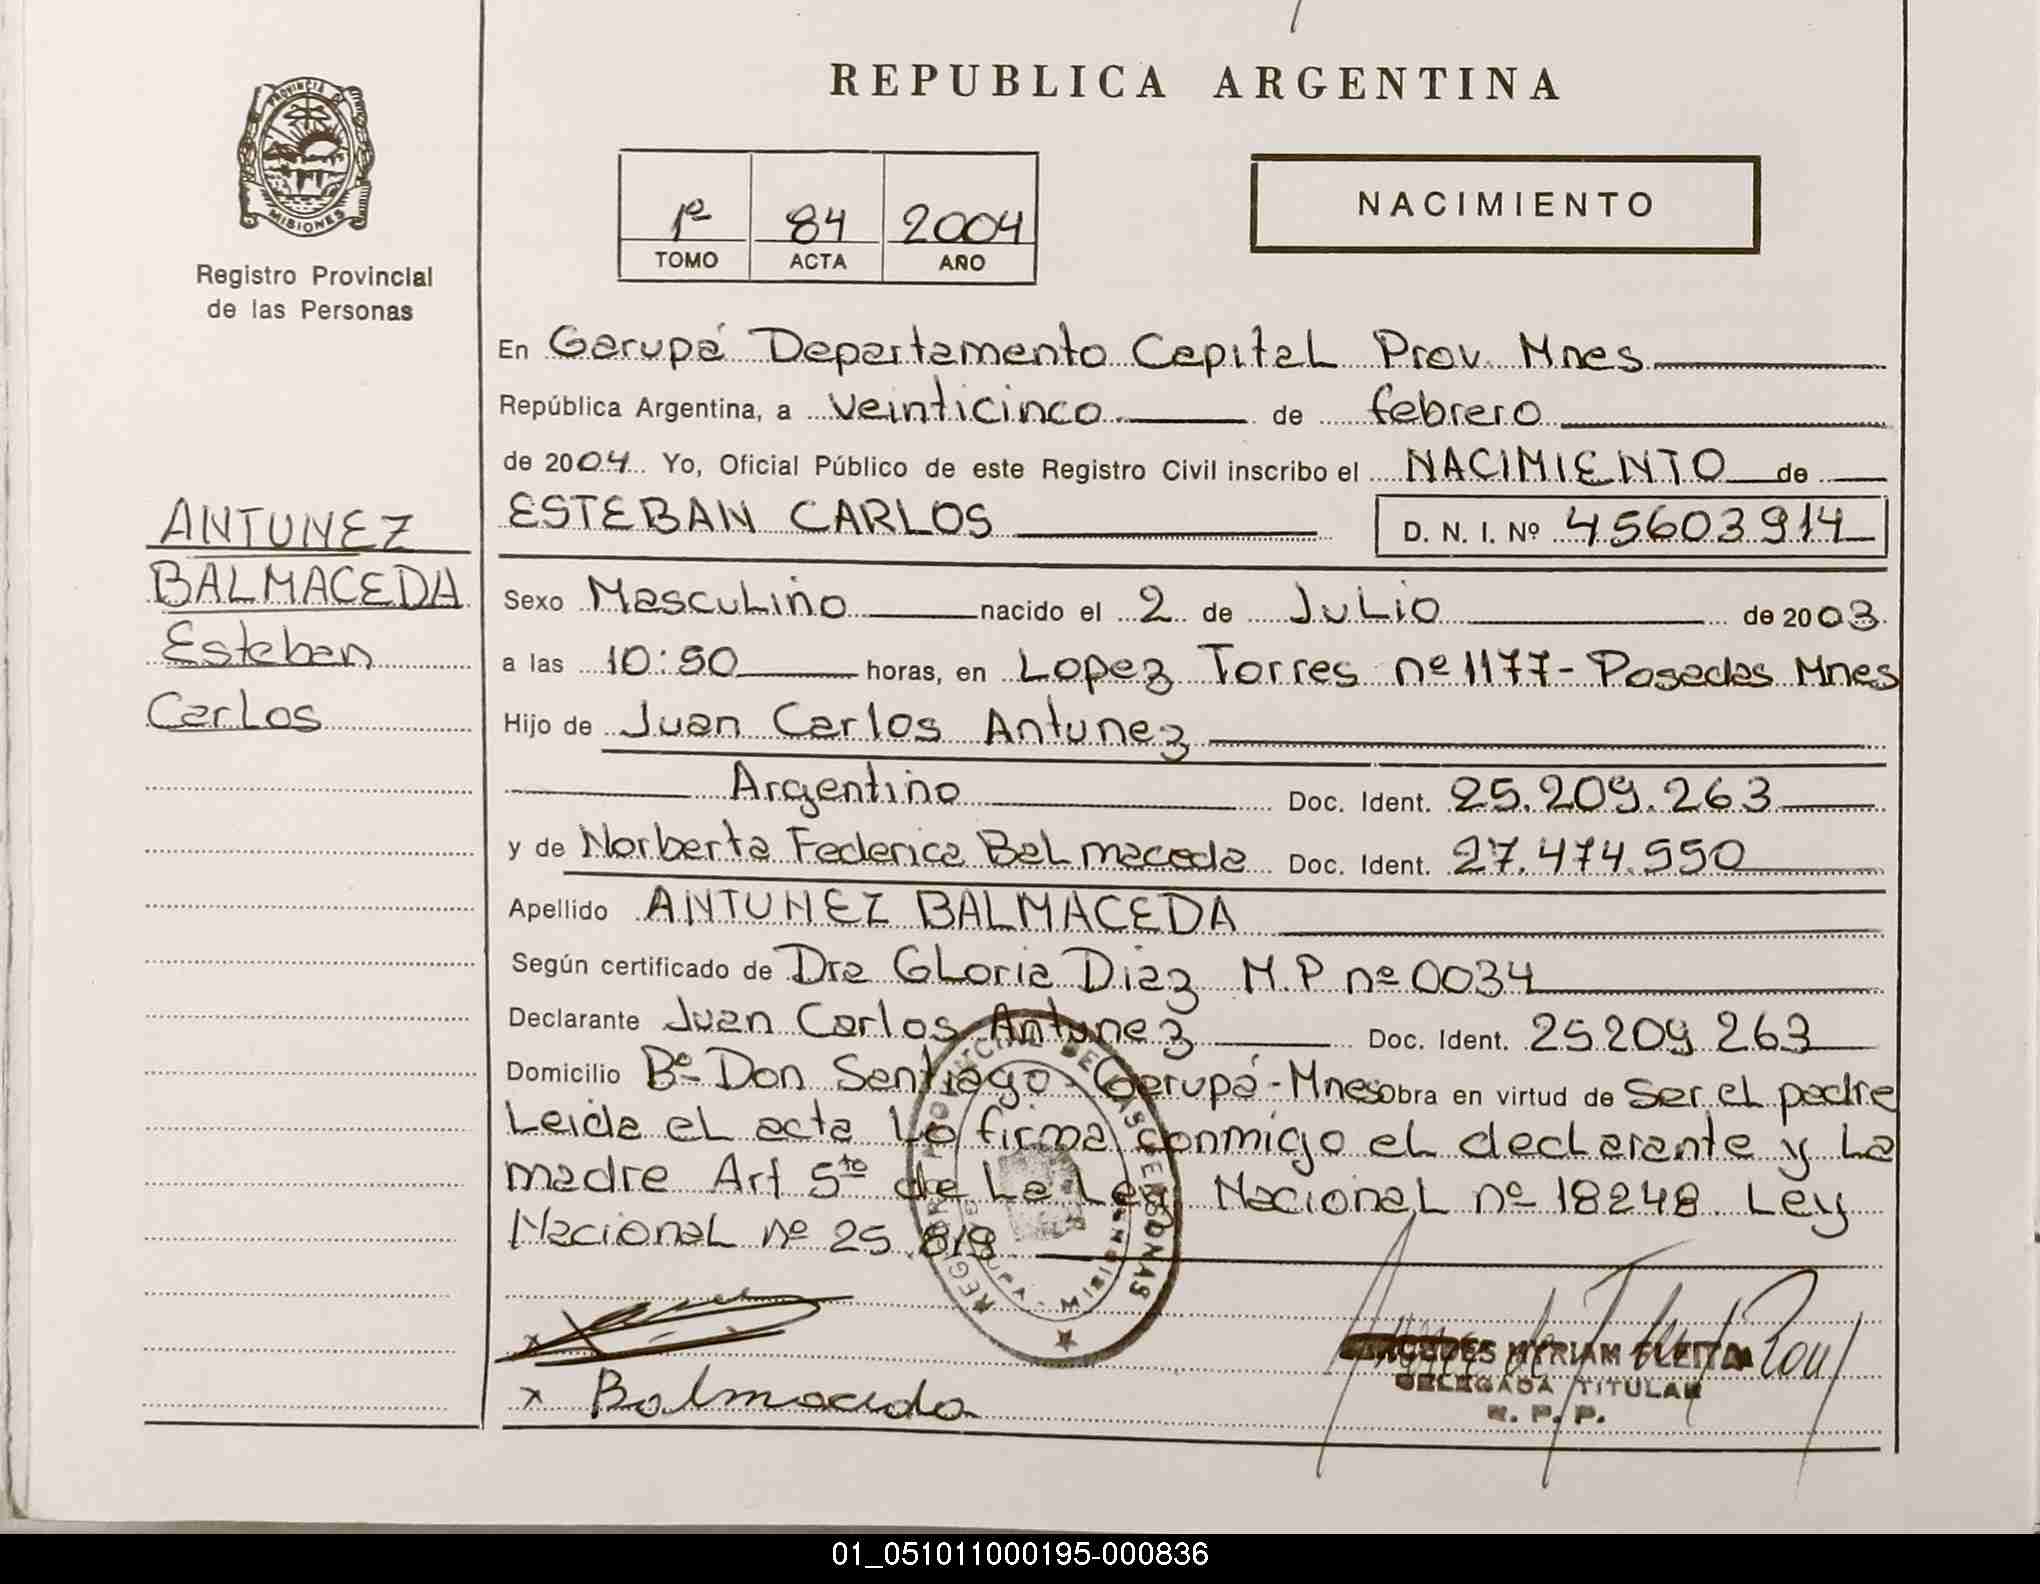 REPUBLICA ARGENTINA
PROVINCIA DE
MISIONES
Registro Provincial
de las Personas
1º 84 2004
TOMO ACTA AÑO
NACIMIENTO
ANTUNEZ
BALMACEDA
Esteban
Carlos
En Garupá Departamento Capital Prov. Mnes
República Argentina, a veinticinco de febrero
de 2004 Yo, Oficial Público de este Registro Civil inscribo el NACIMIENTO de
ESTEBAN CARLOS D. N. I. Nº 45603914
Sexo Masculino nacido el 2 de Julio de 2003
a las 10:50 horas, en Lopez Torres nº 1177- Posadas Mnes
Hijo de Juan Carlos Antunez
Argentino Doc. Ident. 25.209.263
y de Norberta Federica Balmaceda Doc. Ident. 27.474.550
Apellido ANTUNEZ BALMACEDA
Según certificado de Dra Gloria Diaz M.P nº 0034
Declarante Juan Carlos Antunez Doc. Ident. 25209 263
Domicilio Bº Don Santiago - Garupá - Mnes obra en virtud de ser el padre
Leida el acta La firma conmigo el declarante y La
madre Art 5to de La Ley Nacional nº 18248 Ley
Nacional nº 25.819
REGISTRO PROVINCIAL DE LAS PERSONAS
GARUPA - MISIONES
x
x Balmaceda
MYRIAM
DELEGADA TITULAR
R. P. P.
01_051011000195-000836